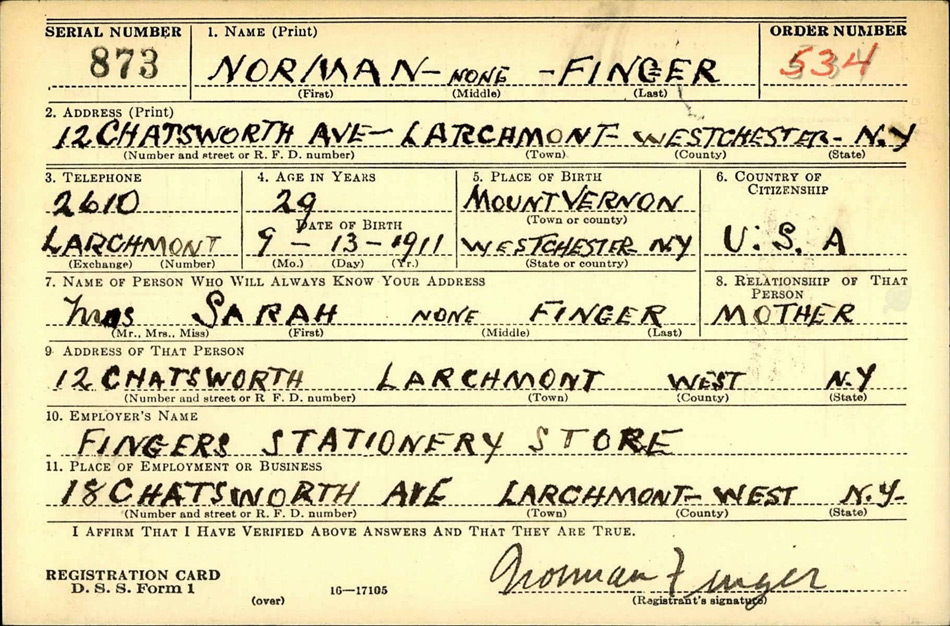 SERIAL NUMBER 1. NAME (Print) ORDER NUMBER
873 NORMAN - NONE - FINGER 534
(First) (Middle) (Last)
2. ADDRESS (Print)
12 CHATSWORTH AVE - LARCHMONT - WESTCHESTER - N.Y
(Number and street or R. F. D. number) (Town) (County) (State)
3. TELEPHONE 4. AGE IN YEARS 5. PLACE OF BIRTH 6. COUNTRY OF CITIZENSHIP
2610 29 MOUNT VERNON
DATE OF BIRTH (Town or county)
LARCHMONT 9 - 13 - 1911 WESTCHESTER N.Y U. S. A
(Exchange) (Number) (Mo.) (Day) (Yr.) (State or country)
7. NAME OF PERSON WHO WILL ALWAYS KNOW YOUR ADDRESS 8. RELATIONSHIP OF THAT PERSON
Mrs SARAH NONE FINGER MOTHER
(Mr., Mrs., Miss) (First) (Middle) (Last)
9. ADDRESS OF THAT PERSON
12 CHATSWORTH LARCHMONT WEST N.Y
(Number and street or R. F. D. number) (Town) (County) (State)
10. EMPLOYER'S NAME
FINGERS STATIONERY STORE
11. PLACE OF EMPLOYMENT OR BUSINESS
18 CHATSWORTH AVE LARCHMONT - WEST N.Y-
(Number and street or R. F. D. number) (Town) (County) (State)
I AFFIRM THAT I HAVE VERIFIED ABOVE ANSWERS AND THAT THEY ARE TRUE.
REGISTRATION CARD Norman Finger
D. S. S. Form 1 (over) 16—17105 (Registrant's signature)